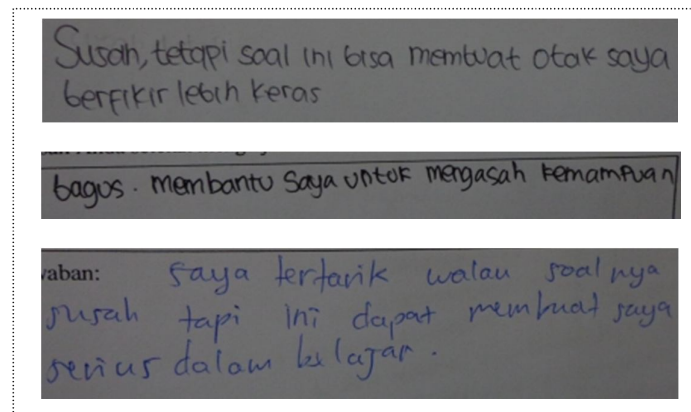 Susah, tetapi soal ini bisa membuat otak saya
berfikir lebih keras
bagus. membantu saya untuk mengasah kemampuan
waban: saya tertarik walau soalnya
susah tapi ini dapat membuat saya
serius dalam belajar.